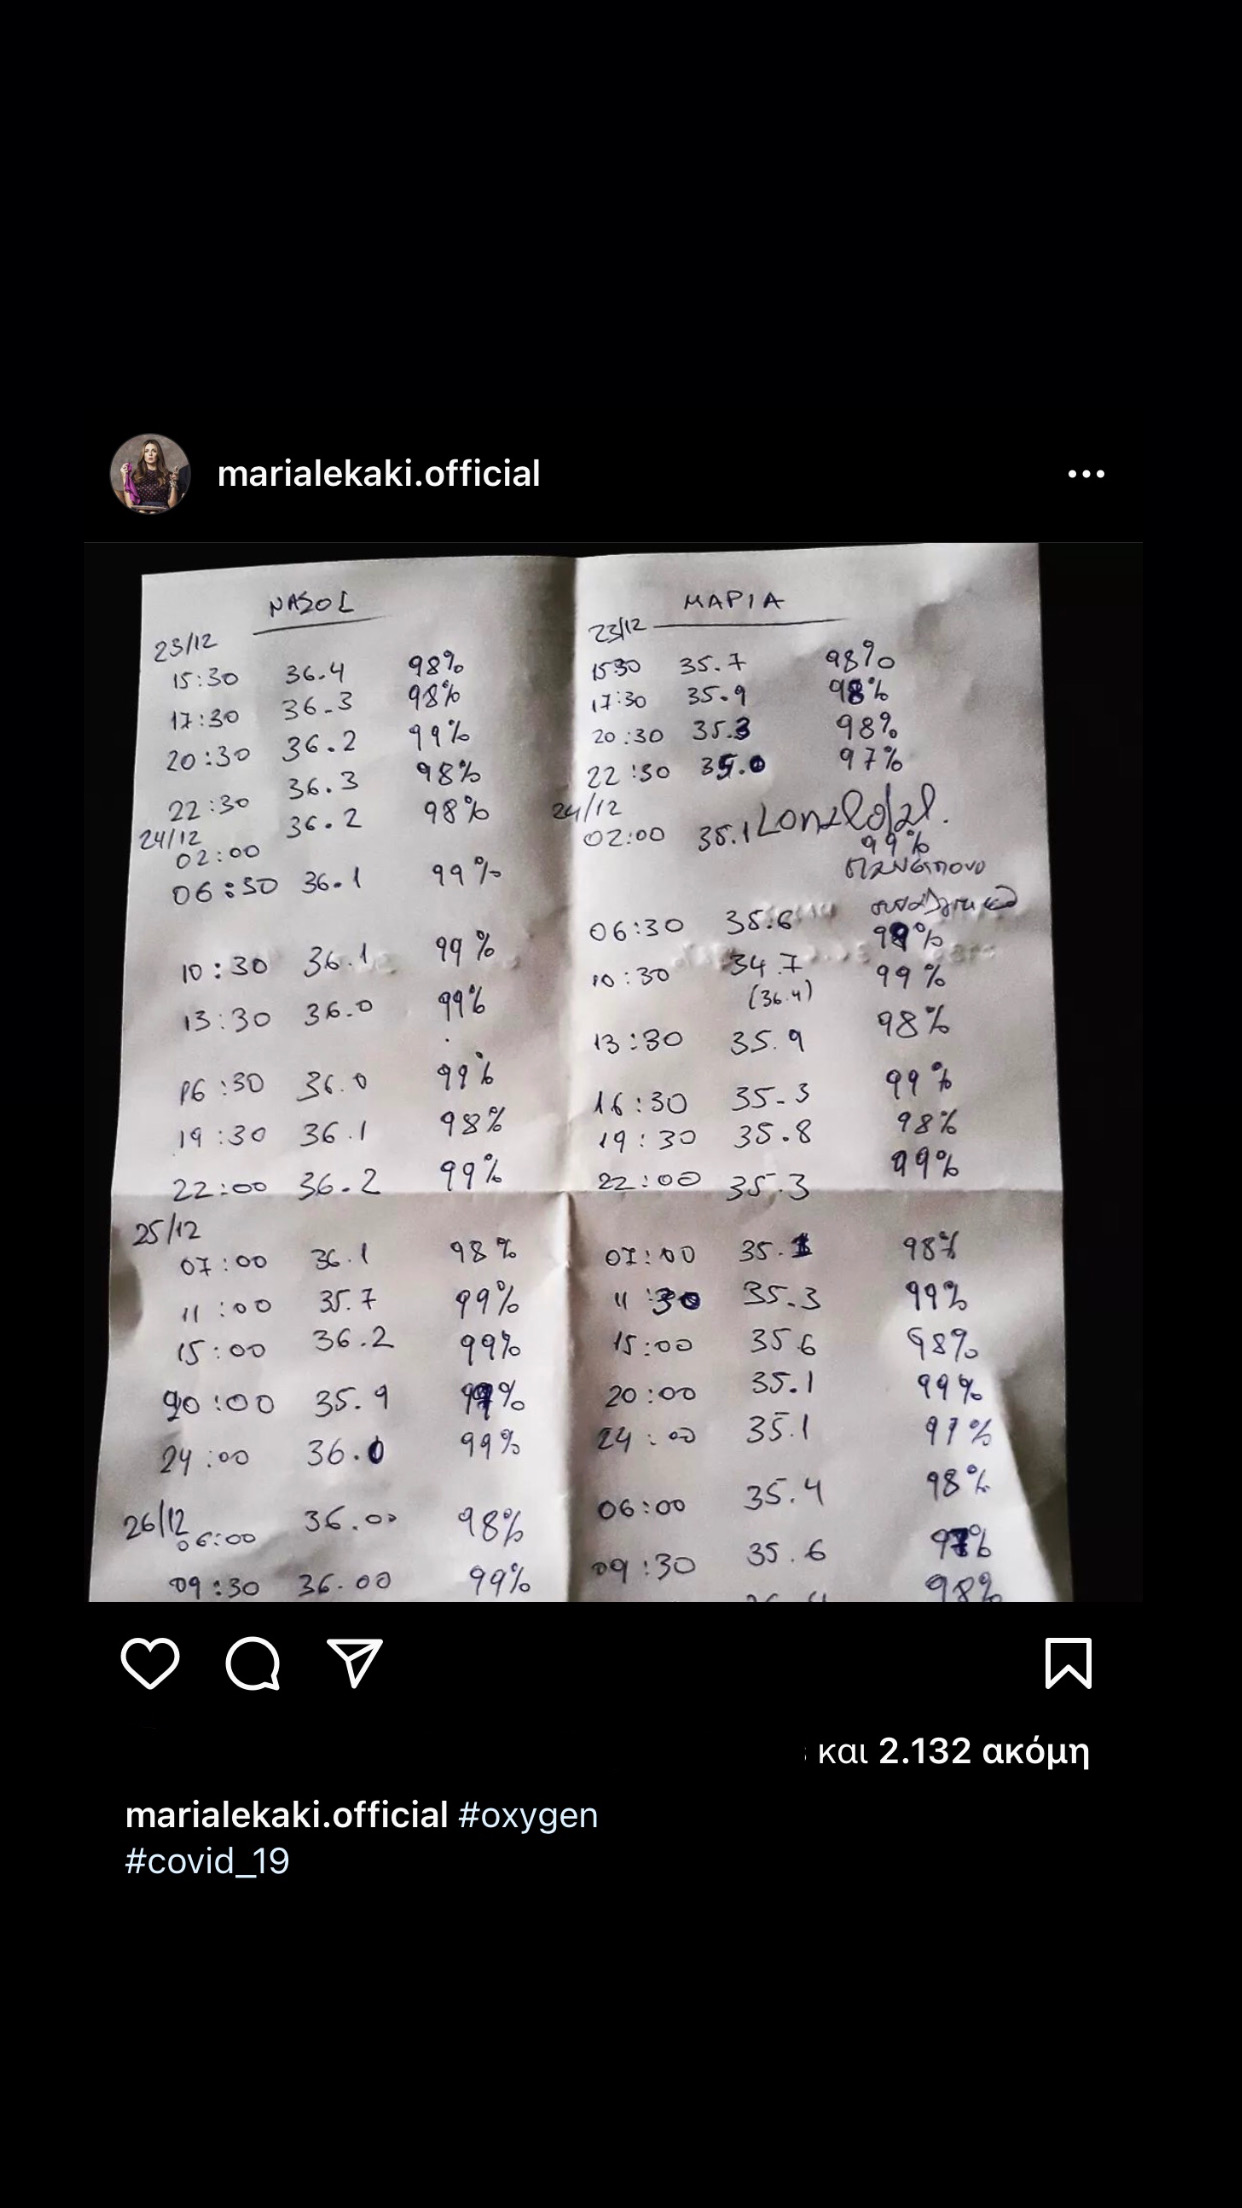 marialekaki.official
NASOL
23/12
15:30 36.4 98%
17:30 36.3 98%
20:30 36.2 99%
22:30 36.3 98%
24/12
02:00 36.2 98%
06:30 36.1 99%
10:30 36.1 99%
13:30 36.0 99%
16:30 36.0 99%
19:30 36.1 98%
22:00 36.2 99%
25/12
07:00 36.1 98%
11:00 35.7 99%
15:00 36.2 99%
20:00 35.9 99%
24:00 36.0 99%
26/12
06:00 36.00 98%
09:30 36.00 99%
ΜΑΡΙΑ
23/12
1530 35.7 98%
17:30 35.9 98%
20:30 35.3 98%
22:30 35.0 97%
24/12
02:00 35.1
99%
06:30 35.6
10:30 34.7 99%
(36.4)
13:30 35.9 98%
16:30 35.3 99%
19:30 35.8 98%
22:00 35.3 99%
07:00 35.1 98%
11:30 35.3 99%
15:00 35.6 98%
20:00 35.1 99%
24:00 35.1 97%
06:00 35.4 98%
09:30 35.6 97%
98%
και 2.132 ακόμη
marialekaki.official #oxygen
#covid_19